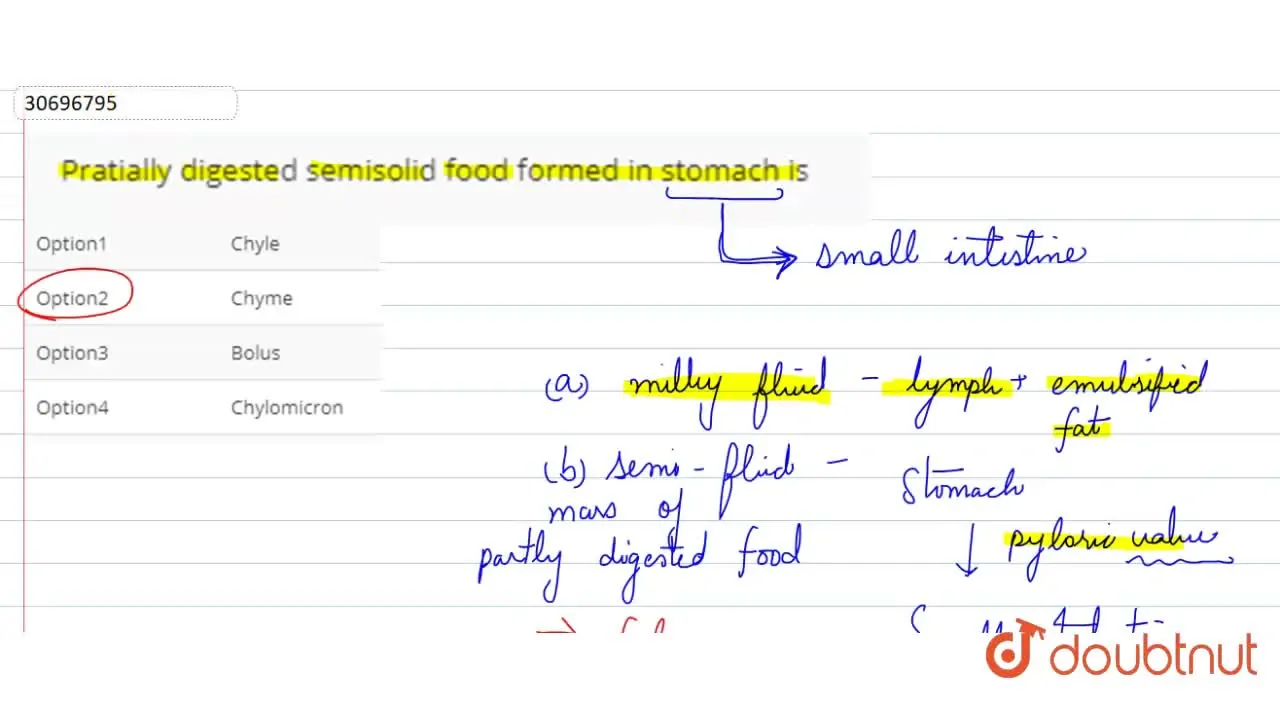 30696795
Pratially digested semisolid food formed in stomach is
Option1 Chyle
small intestine
Option2 Chyme
Option3 Bolus
(a) milky fluid - lymph + emulsified
fat
Option4 Chylomicron
(b) semi-fluid - Stomach
mass of
pyloric valve
partly digested food
doubtnut